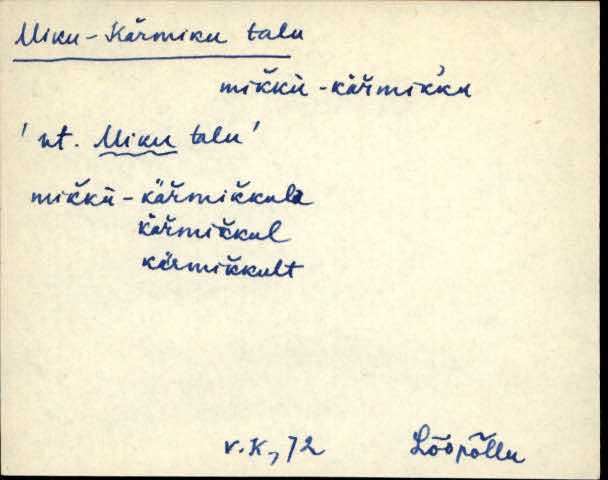 Miku-Kärmiku talu
mikkù-kär̆mik̆ku
' vt. Miku talu'
mik̆kù-kär̆mik̆kula
kär̆mik̆kul
kärmik̆kult
v.K, 72 Lõõpõllu